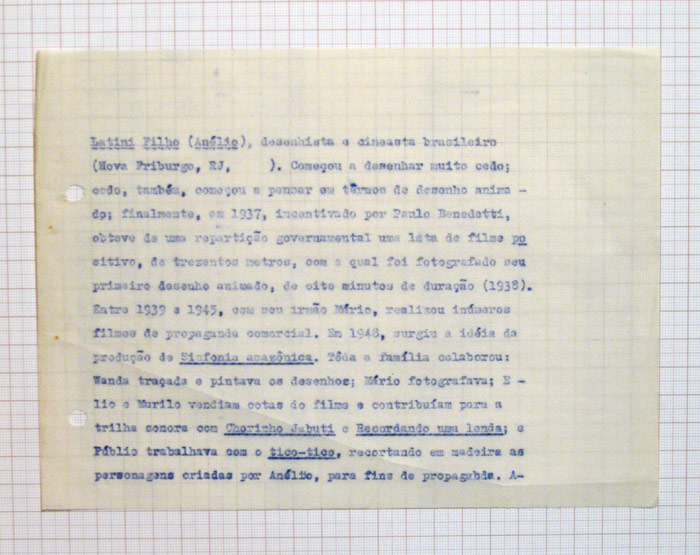 Latini Filho (Anélio), desenhista e cineasta brasileiro
(Nova Friburgo, RJ, ). Começou a desenhar muito cedo;
cedo, também, começou a pensar em têrmos de desenho anima -
do; finalmente, em 1937, incentivado por Paulo Benedetti,
obteve de uma repartição governamental uma lata de filme po
sitivo, de trezentos metros, com a qual foi fotografado seu
primeiro desenho animado, de oito minutos de duração (1938).
Entre 1939 e 1945, com seu irmão Mário, realizou inúmeros
filmes de propaganda comercial. Em 1948, surgiu a idéia da
produção de Sinfonia amazônica. Tôda a família colaborou:
Wanda traçada e pintava os desenhos; Mário fotografava; E -
lio e Murilo vendiam cotas do filme e contribuíam para a
trilha sonora com Chorinho Jabuti e Recordando uma lenda; e
Públio trabalhava com o tico-tico, recortando em madeira as
personagens criadas por Anélio, para fins de propaganda. A-